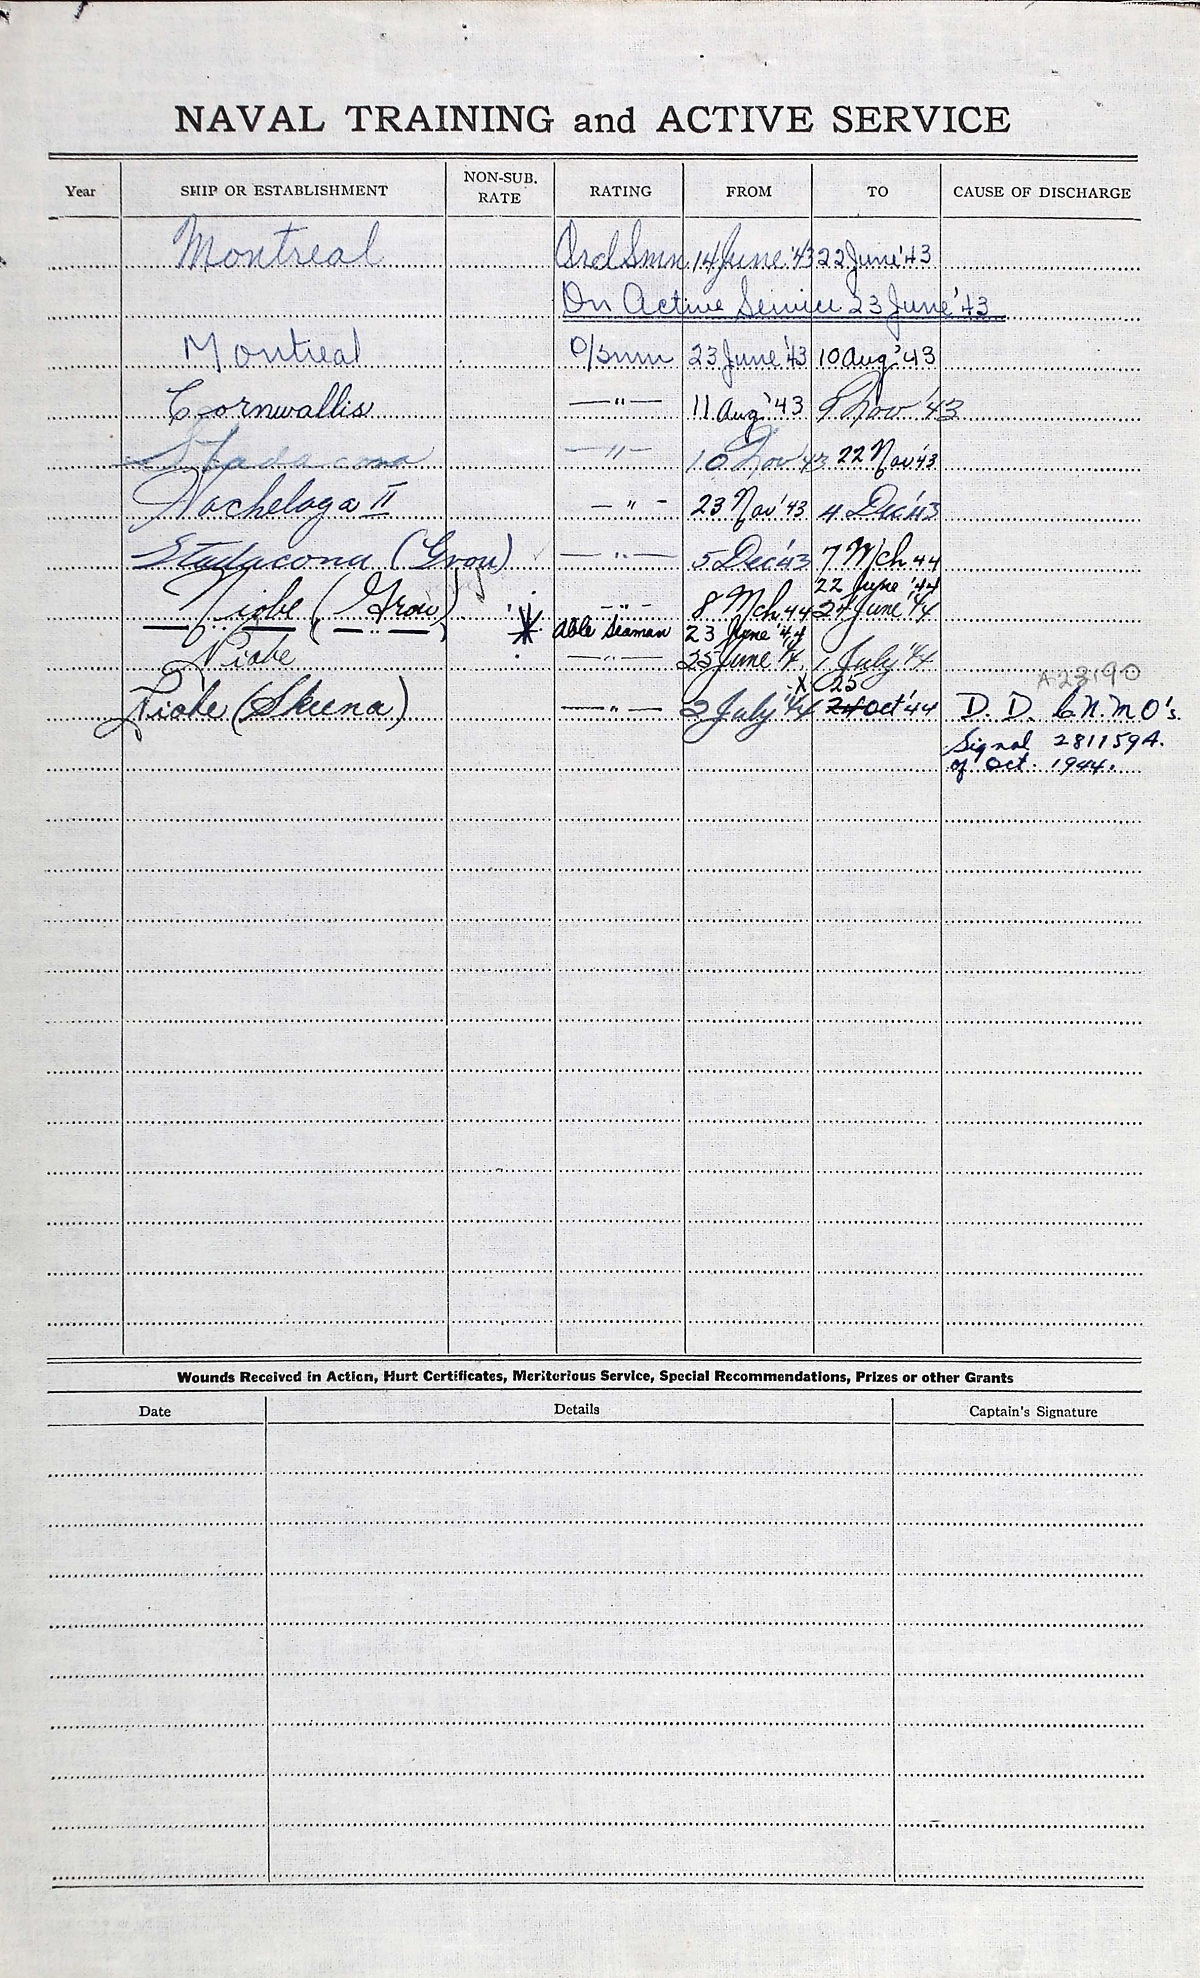 NAVAL TRAINING and ACTIVE SERVICE
Year SHIP OR ESTABLISHMENT NON-SUB. RATE RATING FROM TO CAUSE OF DISCHARGE
Montreal Ord Smn 14 June '43 22 June '43
On Active Service 23 June '43
Montreal O/Smn 23 June '43 10 Aug '43
Cornwallis —"— 11 Aug '43 9 Nov '43
Stadacona —"— 10 Nov '43 22 Nov '43
Hochelaga II —"— 23 Nov '43 4 Dec '43
Stadacona (Grou) —"— 5 Dec '43 7 Mch 44
22 June '44
Niobe (Grou) —"— 8 Mch 44 24 June '44
Able Seaman 23 June '44
Niobe —"— 25 June '44 1 July '44
A23190
x 25
Niobe (Skeena) —"— 2 July '44 24 Oct '44 D. D. C.N.M.O's.
Signal 281159A.
of Oct. 1944.
Wounds Received in Action, Hurt Certificates, Meritorious Service, Special Recommendations, Prizes or other Grants
Date Details Captain's Signature